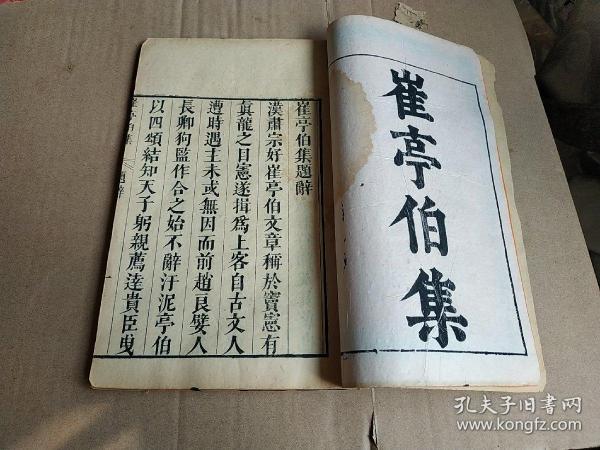 崔亭伯集
崔亭伯集題辭
漢肅宗好崔亭伯文章稱於竇憲有
真龍之目憲遂揖為上客自古文人
遭時遇主未或無因而前趙良嬖人
長卿狗監作合之始不辭汙泥亭伯
以四頌結知天子躬親薦達貴臣曳
題辭
孔夫子旧书网
www.kongfz.com